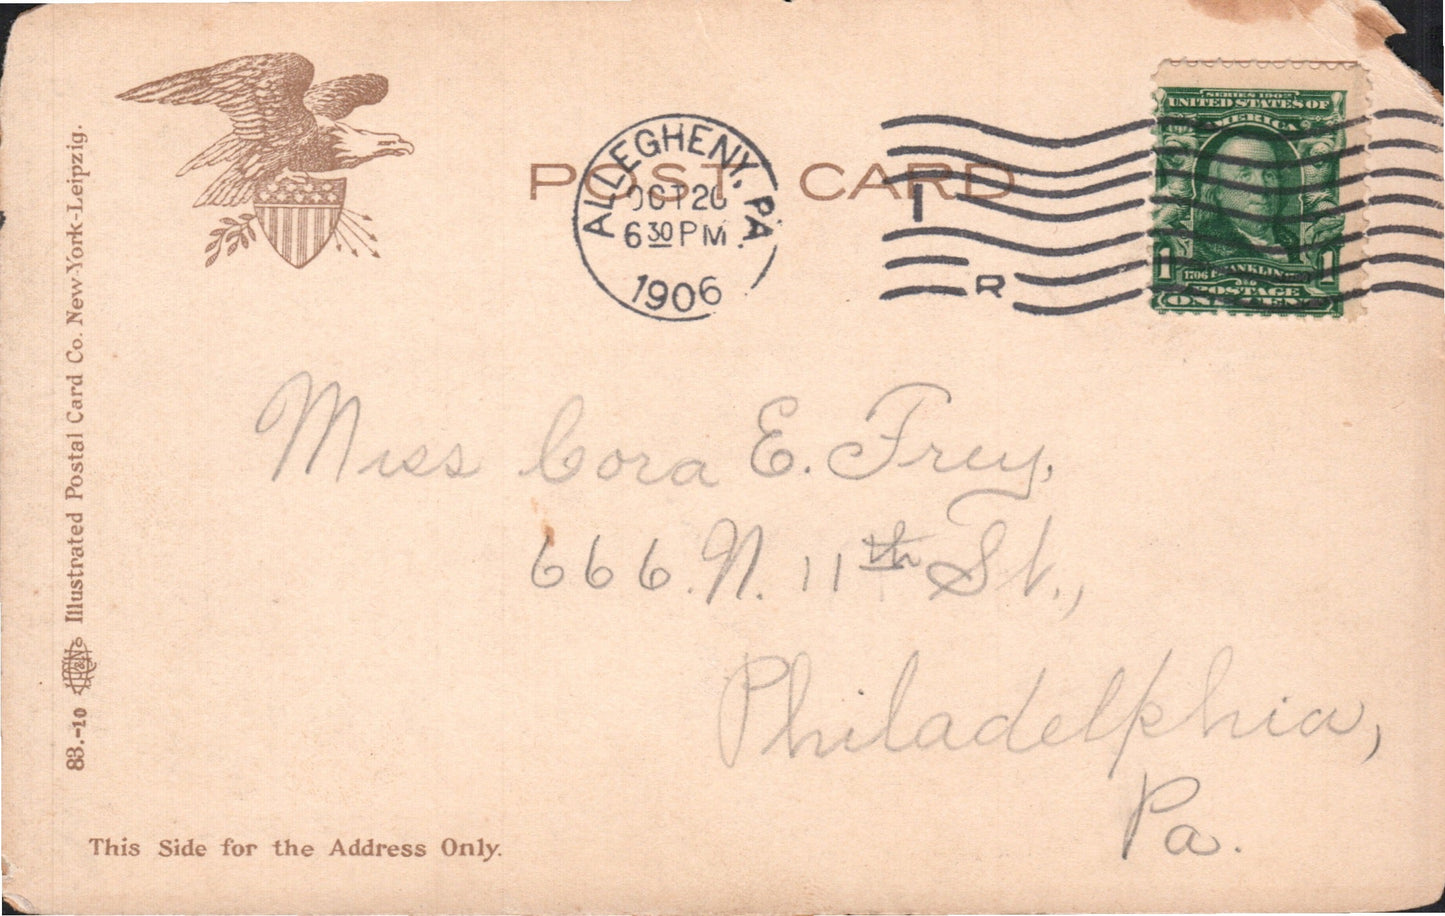 POST CARD
ALLEGHENY, PA.
OCT 26
6 30 PM
1906
I
R
SERIES 1902
UNITED STATES OF
AMERICA
1706 FRANKLIN
1 1
POSTAGE
ONE CENT
Miss Cora E. Frey,
666 N. 11th St.,
Philadelphia,
Pa.
This Side for the Address Only.
83.-10 Illustrated Postal Card Co. New-York-Leipzig.